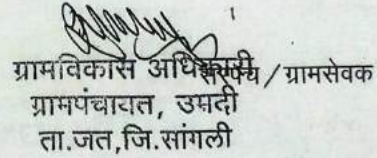 ग्रामविकास अधिकारी सरपंच / ग्रामसेवक
ग्रामपंचायत, उमदी
ता.जत,जि.सांगली